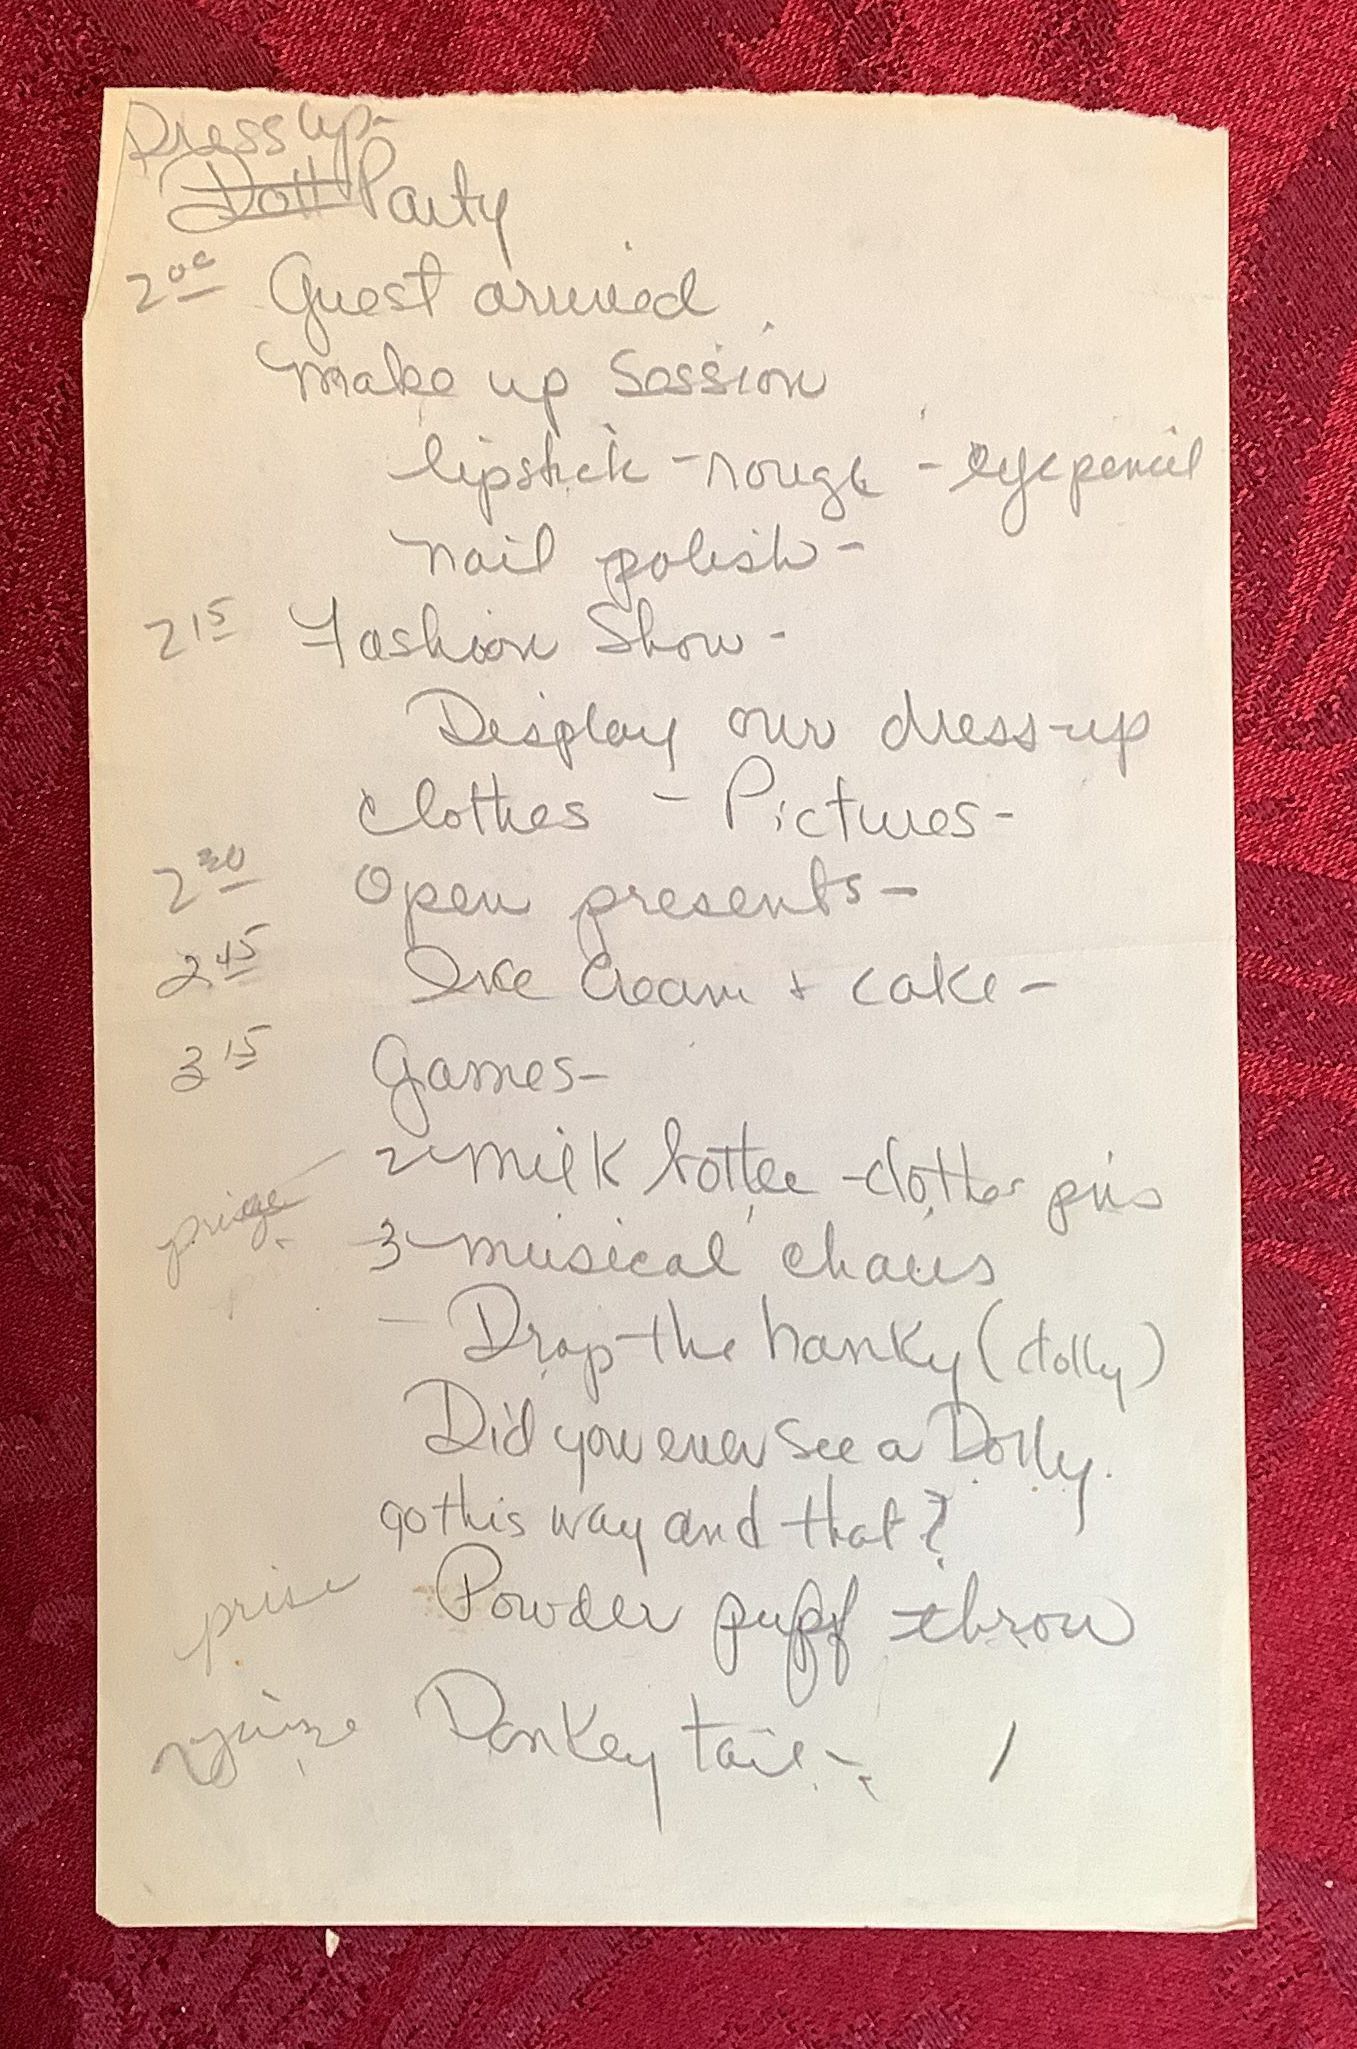 Dress Up-
Doll Party
2 00 Guest arrived
Make up Session
lipstick - rouge - eyepencil
nail polish -
2 15 Fashion Show -
Display our dress-up
clothes - Pictures -
2 30 Open presents -
2 45 Ice Cream + cake -
3 15 Games -
2 - milk bottle - clothes pins
prize 3 - musical chairs
- Drop-the hanky (dolly)
Did you ever see a Dolly
go this way and that?
prize Powder puff throw
prize Donkey tail - /